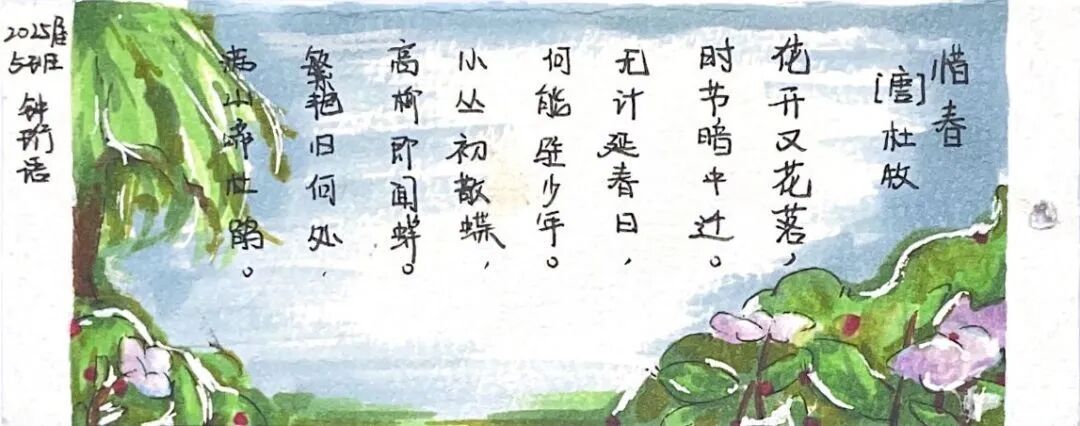 惜春
[唐]杜牧
花开又花落，
时节暗中迁。
无计延春日，
何能驻少年。
小丛初散蝶，
高柳即闻蝉。
繁艳归何处，
满山啼杜鹃。
2025届
5班
钟珩语